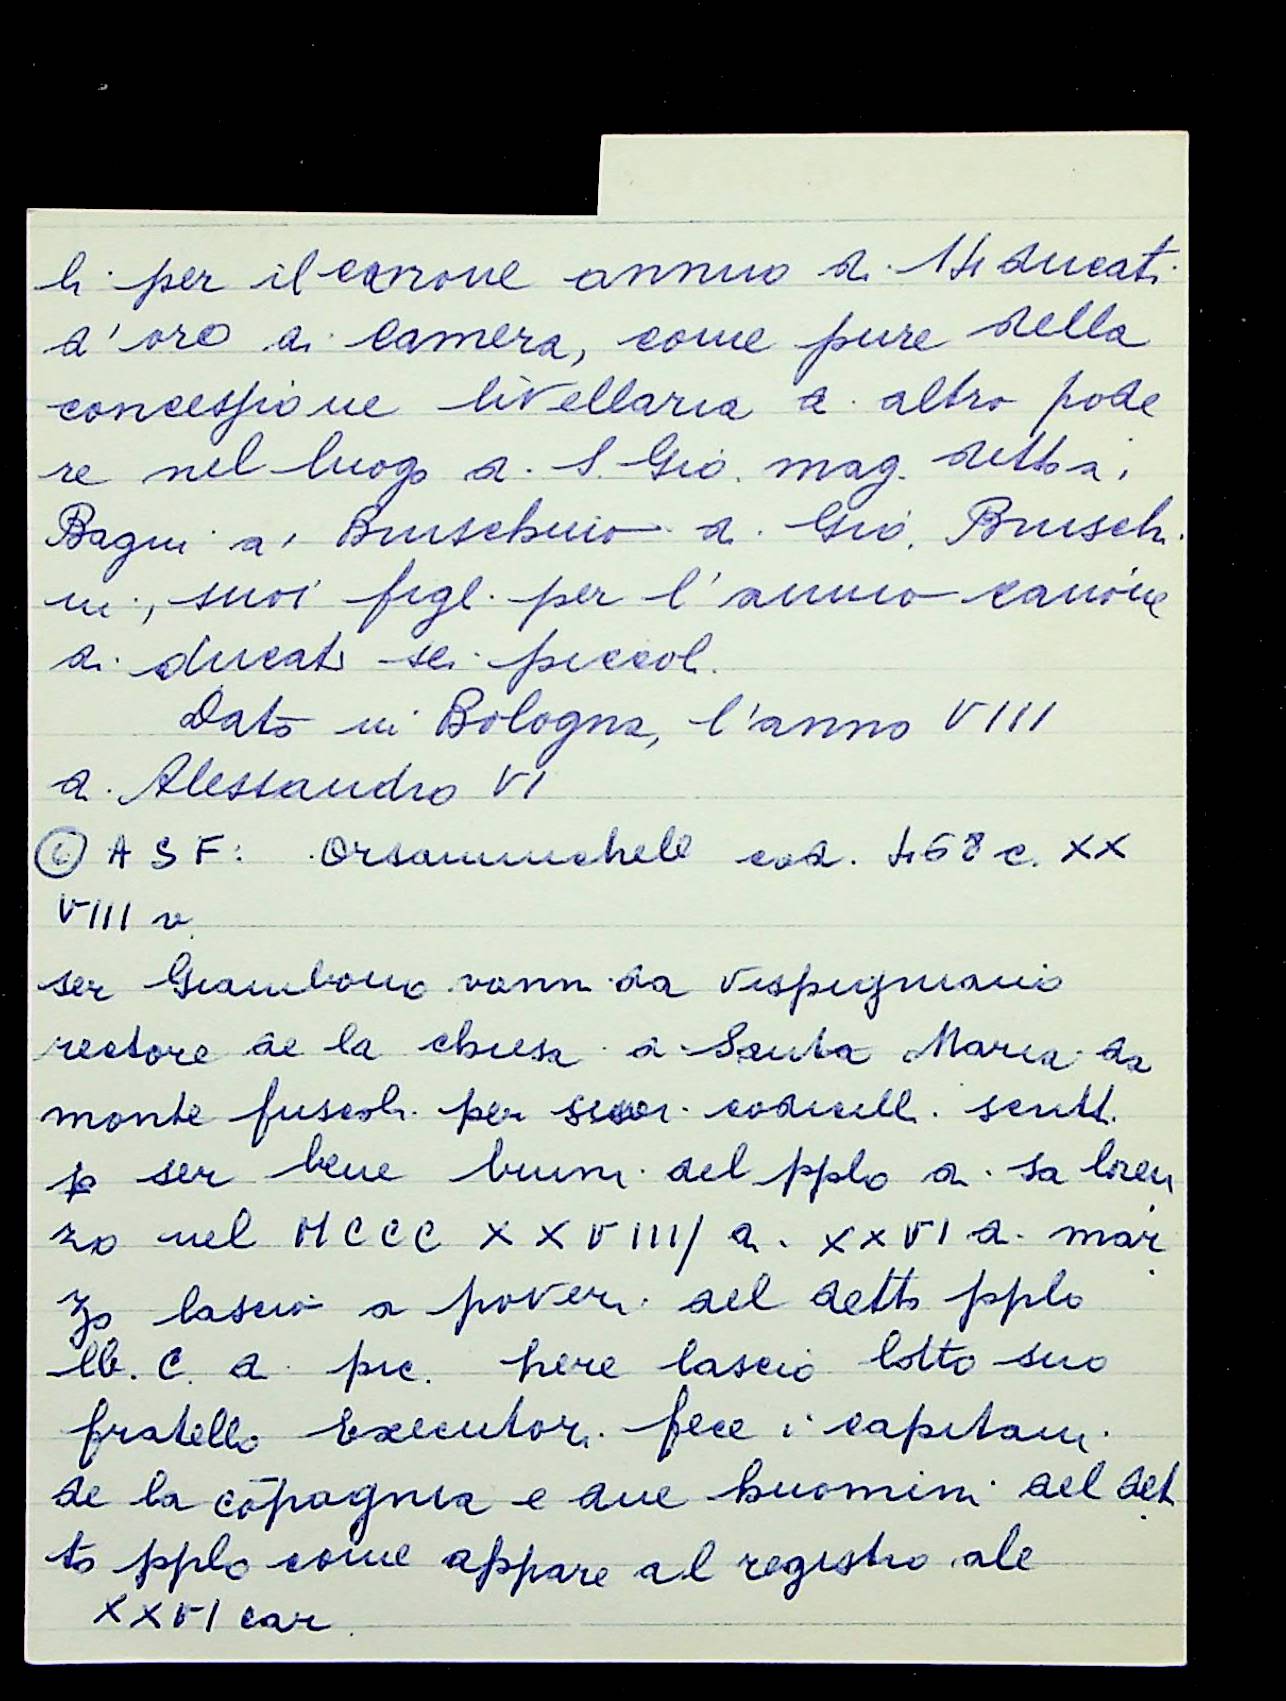 li per il canone annuo di 14 ducati
d'oro di camera, come pure della
concessione livellaria di altro pode
re nel luogo di S. Gio. mag. detto i
Bagni a' Bruschino di Gio. Bruschi
ni, suoi figli per l'annuo canone
di ducati sei piccoli.
Dato in Bologna, l'anno VIII
di Alessandro VI
ASF: Orsammichele cod. 468 c. XX
VIII v.
ser Giambono vanni da vespignano
rectore de la chiesa di Santa Maria da
monte fuscoli per suoi codicilli scritti
p ser bene bruni del pplo di sa loren
zo nel MCCC XXVIII/ di XXVI di mar
zo lasciò a poveri del detto pplo
lb. C. di pic. here lascio lotto suo
fratello Executori fece i capitani
de la cōpagnia e due huomini del det
to pplo come appare al registro ale
XXVI car.